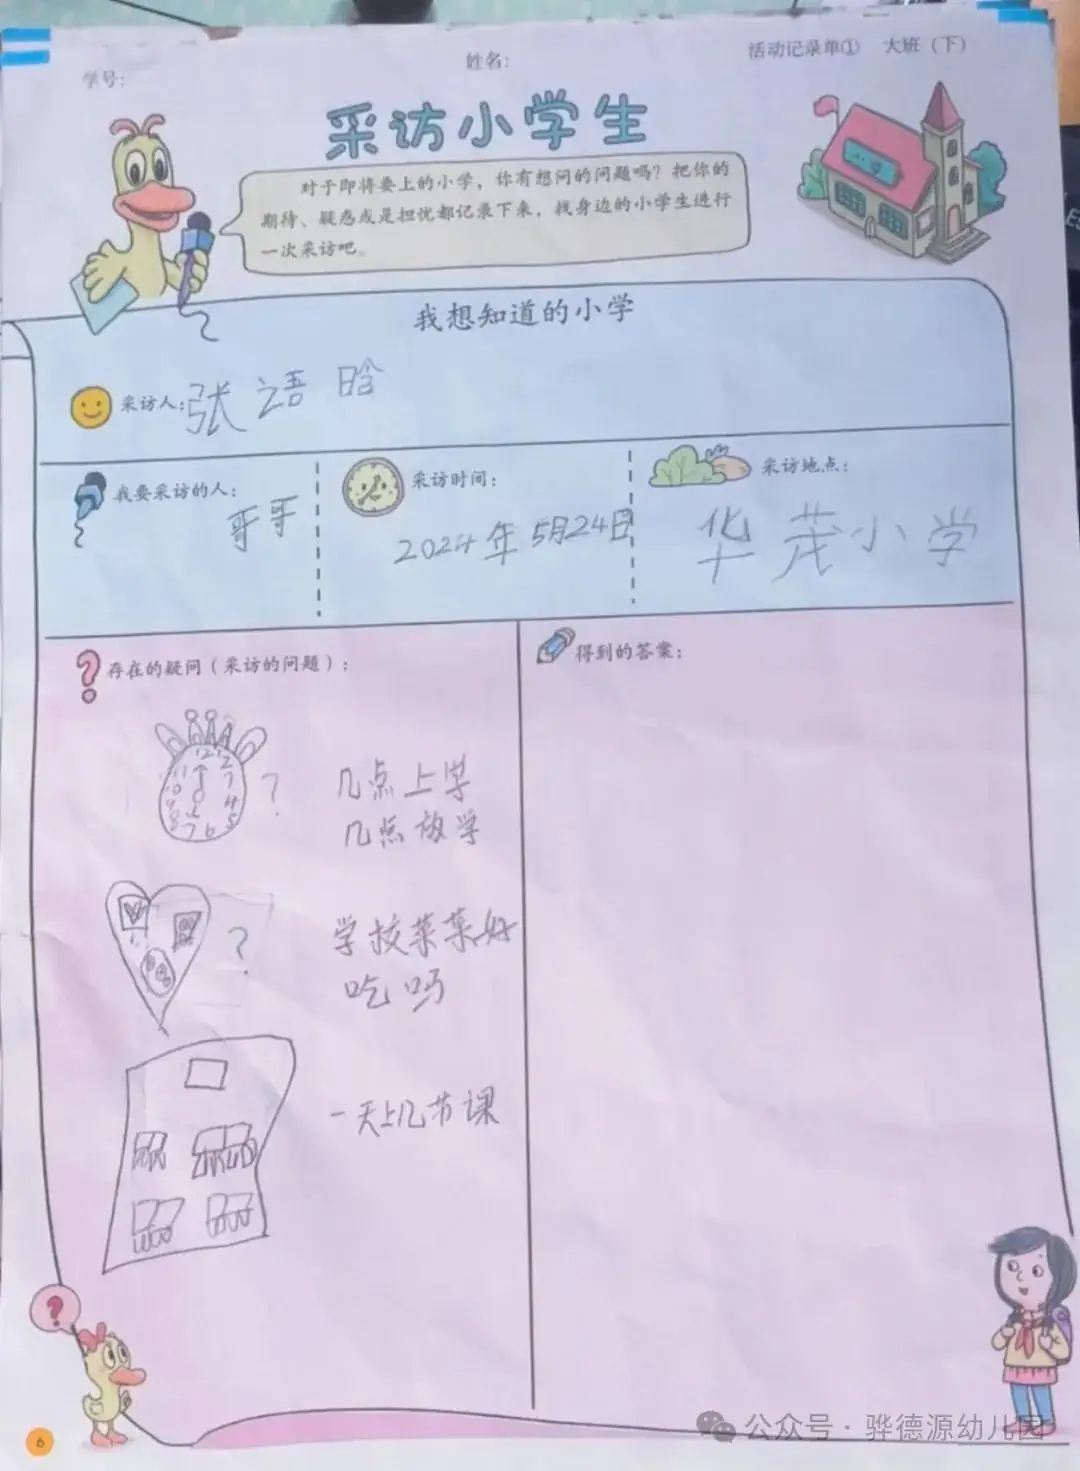 学号:
姓名:
活动记录单① 大班（下）
采访小学生
对于即将要上的小学，你有想问的问题吗？把你的
期待、疑惑或是担忧都记录下来，找身边的小学生进行
一次采访吧。
小学
我想知道的小学
采访人:张语晗
我要采访的人:
哥哥
采访时间:
2024年5月24日
采访地点:
华茂小学
存在的疑问（采访的问题）:
得到的答案:
12
11
12
10
1
9
4
8
7
6
5
?
几点上学
几点放学
?
学校菜菜好
吃吗
一天上几节课
?
6
公众号·骅德源幼儿园